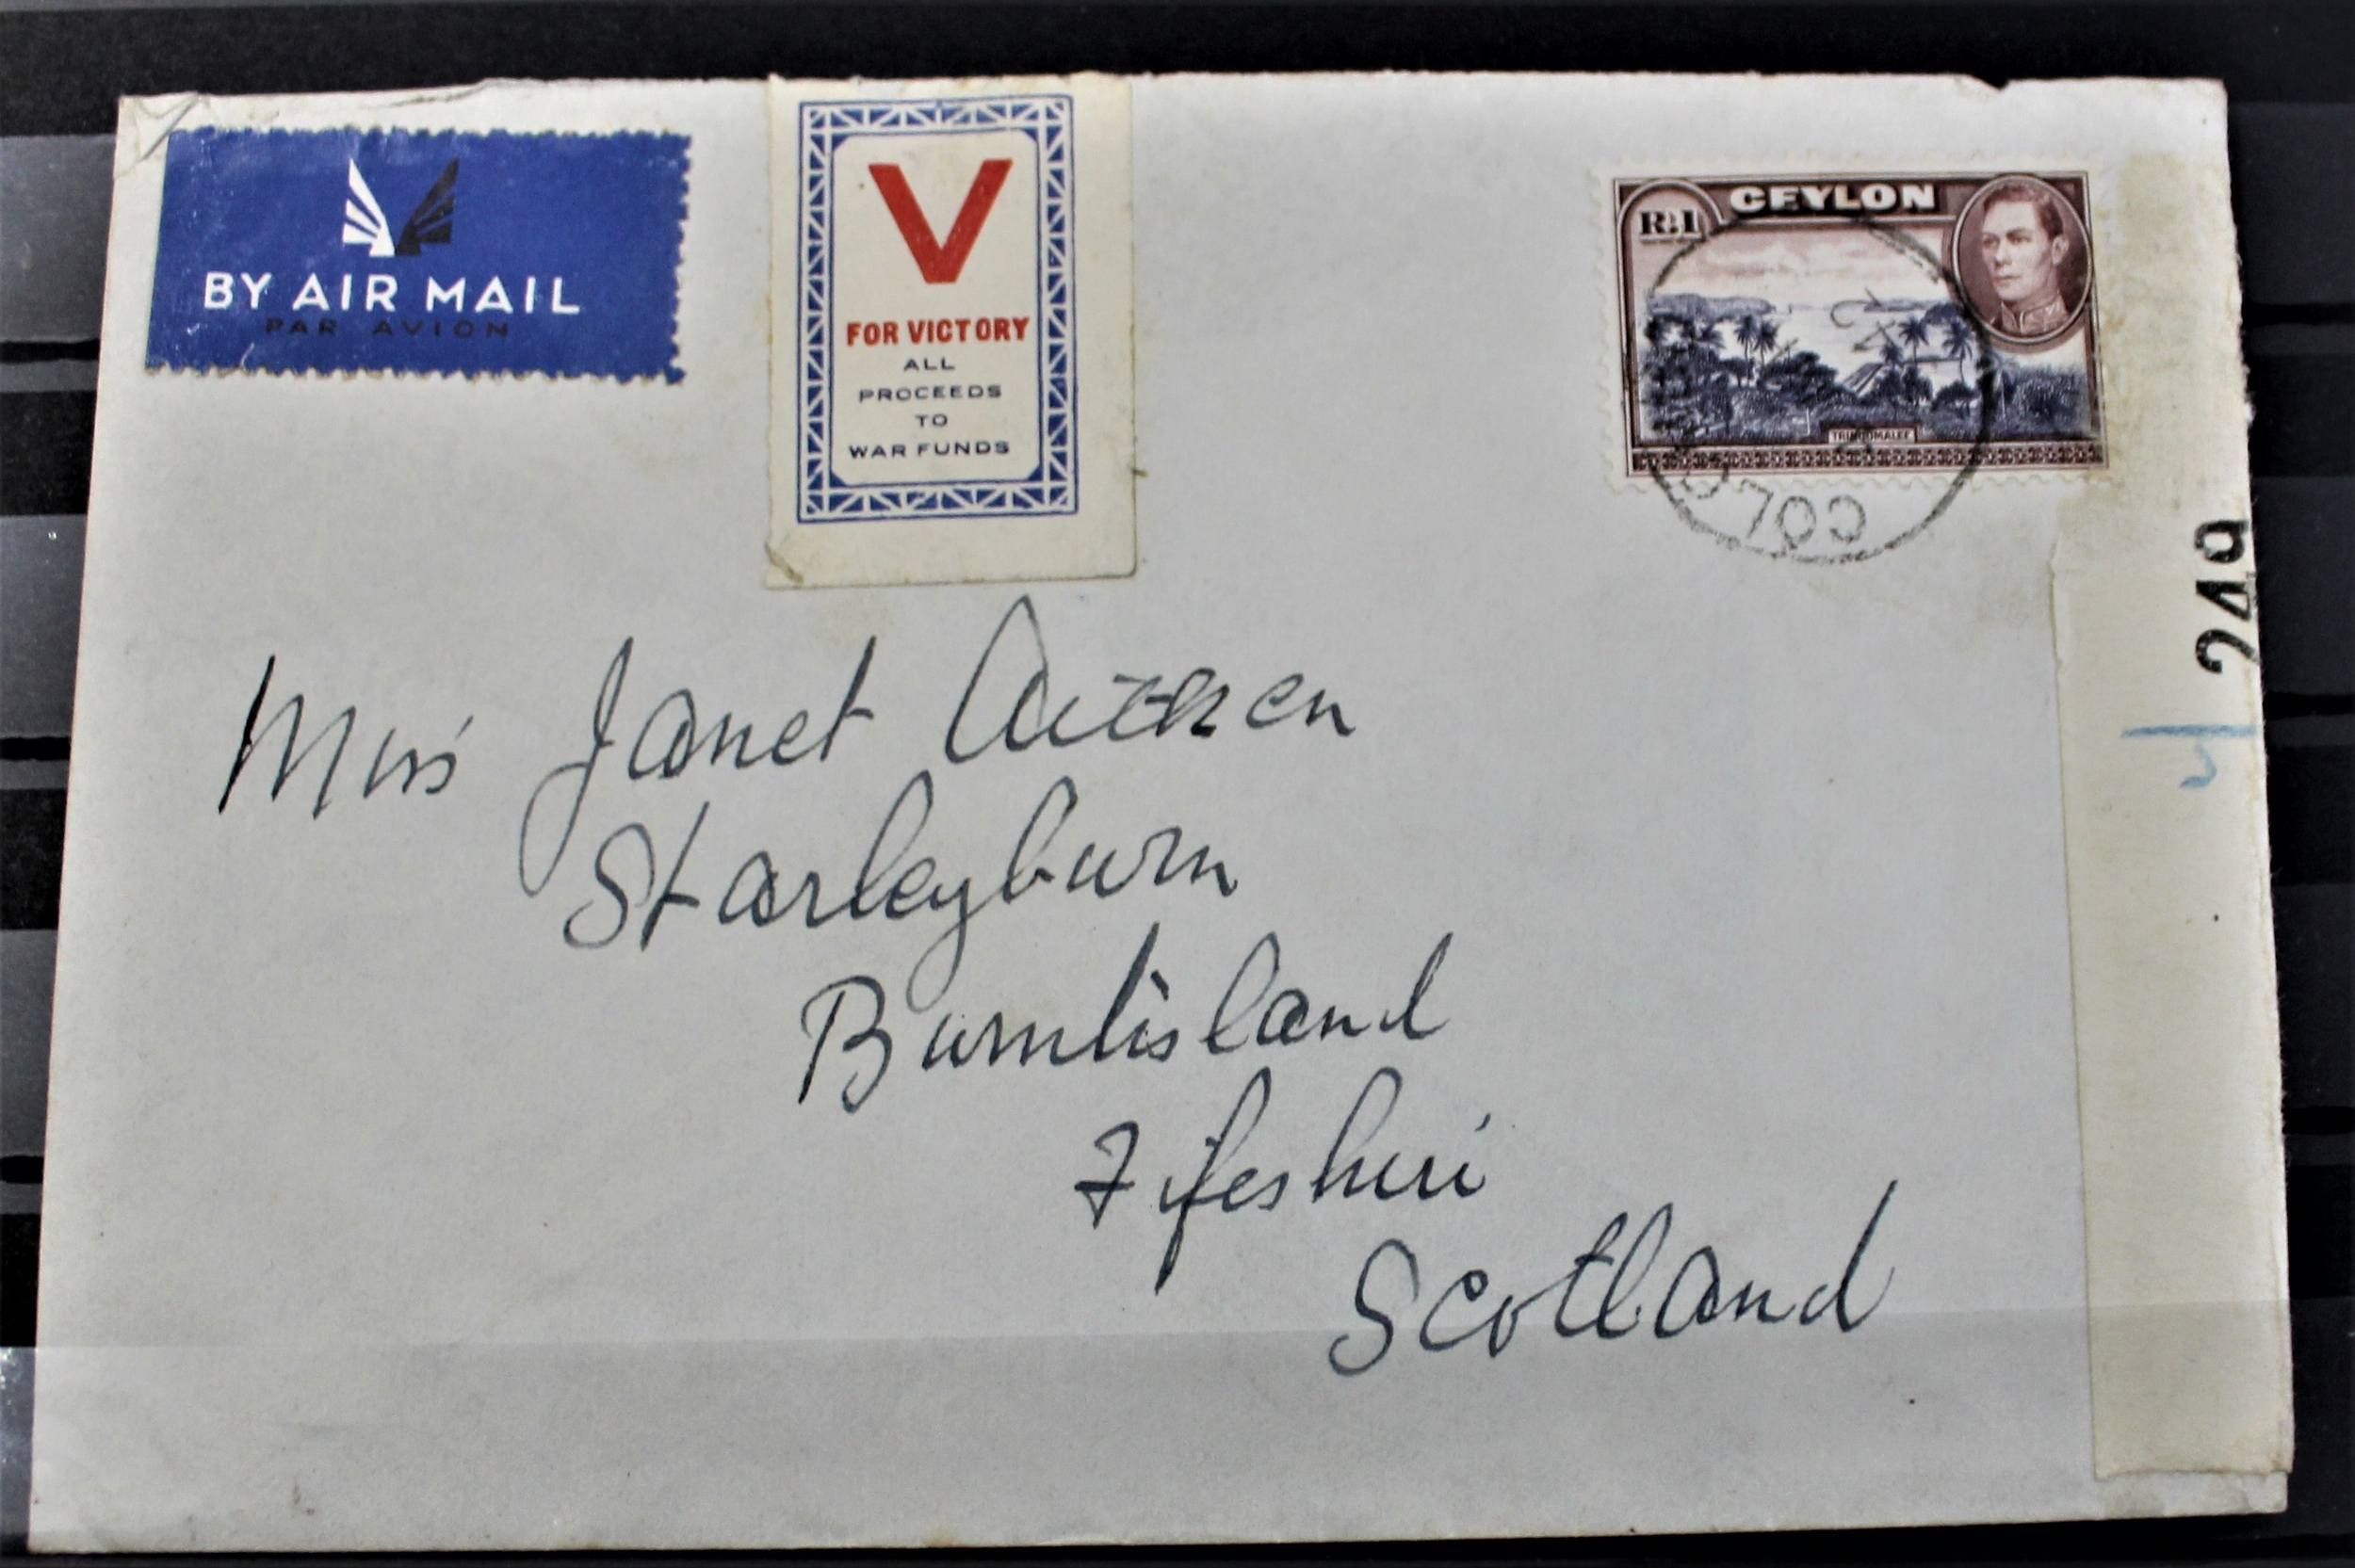 BY AIR MAIL
PAR AVION
V
FOR VICTORY
ALL
PROCEEDS
TO
WAR FUNDS
CEYLON
R:1
TRINCOMALEE
COLO
249
Miss Janet Aitken
Starleyburn
Burntisland
Fifeshire
Scotland